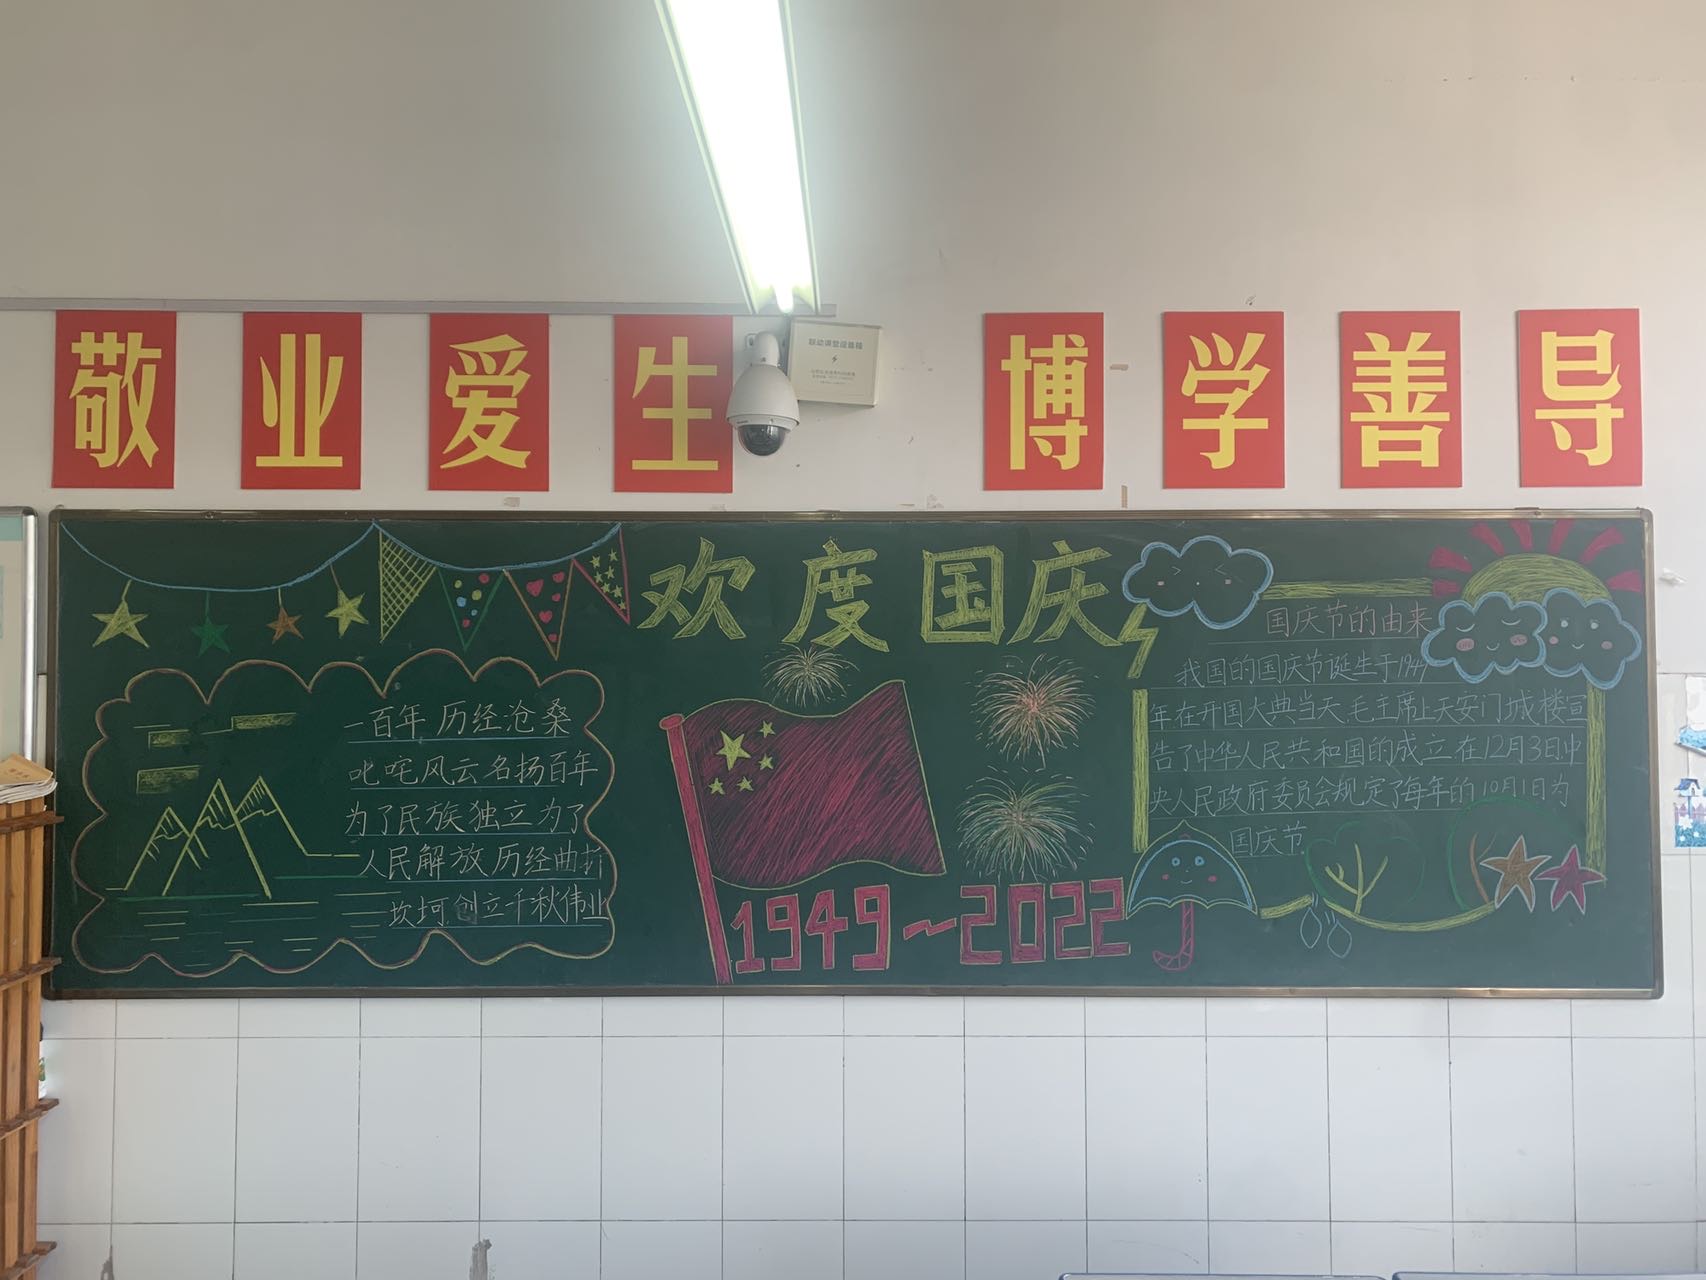 敬业爱生
博学善导
欢度国庆
一百年 历经沧桑
叱咤风云名扬百年
为了民族独立为了
人民解放历经曲折
坎坷创立千秋伟业
1949~2022
国庆节的由来
我国的国庆节诞生于1949
年在开国大典当天毛主席上天安门城楼宣
告了中华人民共和国的成立在12月3日中
央人民政府委员会规定了每年的10月1日为
国庆节